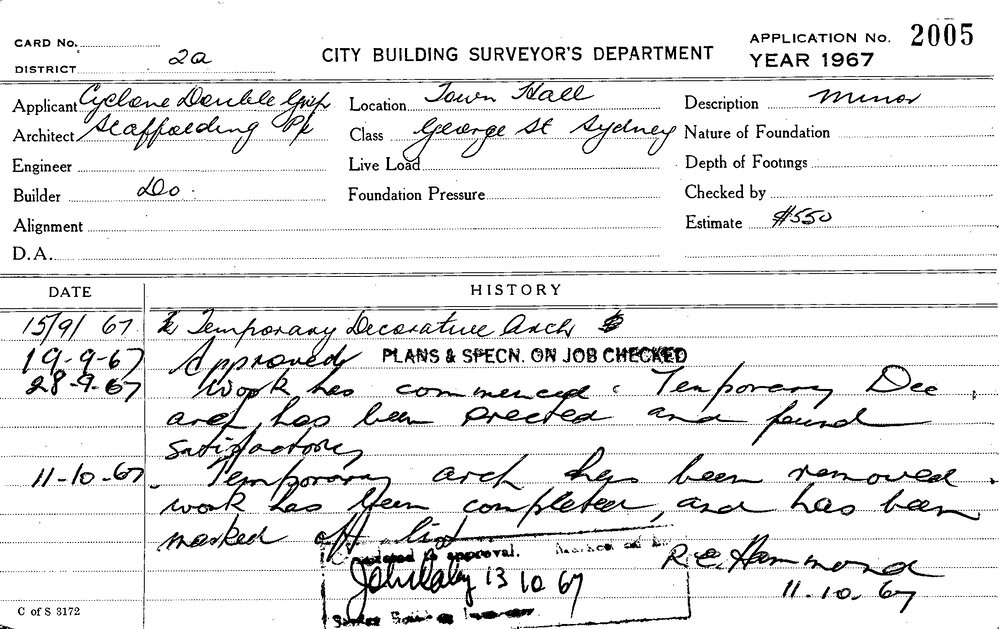 CARD No.
DISTRICT 2a
CITY BUILDING SURVEYOR'S DEPARTMENT
APPLICATION No. 2005
YEAR 1967
Applicant Cyclone Double Grip
Location Town Hall
Description Minor
Architect Scaffolding
Class George St Sydney
Nature of Foundation
Engineer
Live Load
Depth of Footings
Builder Do.
Foundation Pressure
Checked by
Alignment
Estimate $550
D.A.
DATE HISTORY
15/9/67 Temporary Decorative Arch
19-9-67 Approved PLANS & SPECN. ON JOB CHECKED
28-9-67 Work has commenced: Temporary Dec
arch has been erected and found
satisfactory
11-10-67. Temporary arch has been removed.
work has been completed, and has been
marked off list
approval.
13 10 67
R.E. Hammond
11.10.67
C of S 3172